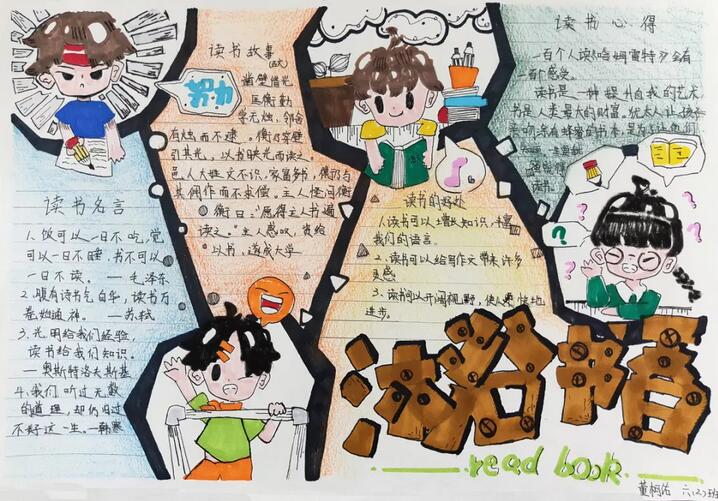 读书故事
努力
凿壁借光
匡衡勤
学无烛，邻舍
有烛而不逮。衡乃穿壁
引其光，以书映光而读之。
邑人大姓文不识，家富多书，衡乃与
其佣作而不求偿。主人怪问衡
衡曰：“愿得主人书遍
读之。”主人感叹，资给
以书，遂成大学
读书名言
1. 饭可以一日不吃，觉
可以一日不睡，书不可以
一日不读。 — 毛泽东
2. 腹有诗书气自华，读书万
卷始通神。 — 苏轼
3. 光明给我们经验，
读书给我们知识。
— 奥斯特洛夫斯基
4. 我们听过无数
的道理，却仍旧过
不好这一生。— 韩寒
读书的好处
1. 读书可以增长知识，丰富
我们的语言。
2. 读书可以给写作文带来许多
灵感。
3. 读书可以开阔视野，使人
进步。
读书心得
一百个人读《哈姆雷特》会有
一百个感受。
读书是一种提升自我的艺术
书是人类最大的财富。犹太人让孩子
亲吻涂有蜂蜜的书本，是为让他们
读书。
沐浴书香
read book
董桐佑 六(2)班